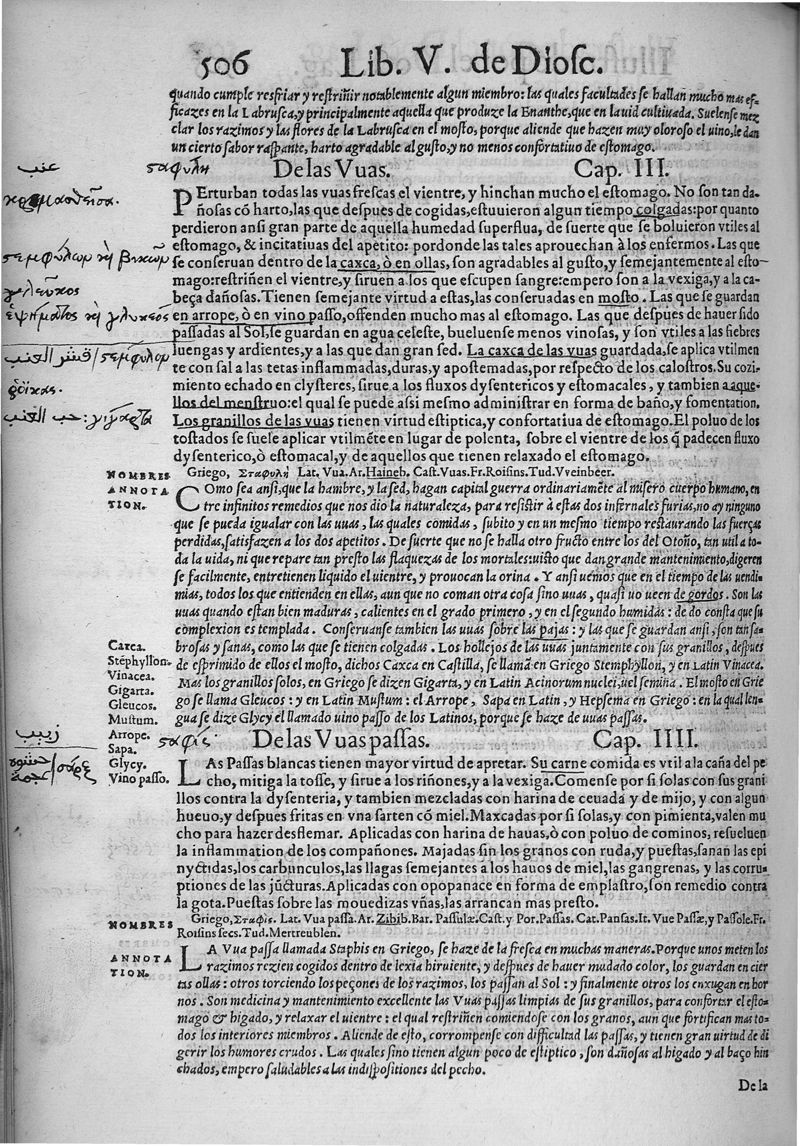 506 Lib. V. de Diosc.
quando cumple resfriar y restriñir notablemente algun miembro: las quales facultades se hallan mucho mas ef-
ficazes en la Labrusca, y principalmente aquella que produze la Enanthe, que en la uid cultiuada. Suelense mez
clar los razimos y las flores de la Labrusca en el mosto, porque aliende que hazen muy oloroso el uino, le dan
un cierto sabor raspante, harto agradable al gusto, y no menos confortatiuo de estomago.
عنب σαφυλη De las Vuas. Cap. III.
PErturban todas las vuas frescas el vientre, y hinchan mucho el estomago. No son tan da-
ñosas cõ harto, las que despues de cogidas, estuuieron algun tiempo colgadas: por quanto
perdieron ansi gran parte de aquella humedad superflua, de suerte que se boluieron vtiles al
estomago, & incitatiuas del apetito: por donde las tales aprouechan à los enfermos. Las que
se conseruan dentro de la caxca, ò en ollas, son agradables al gusto, y semejantemente al esto-
mago: restriñen el vientre, y siruen a los que escupen sangre: empero son a la vexiga, y a la ca-
γλεῦκος
beça dañosas. Tienen semejante virtud a estas, las conseruadas en mosto. Las que se guardan
en arrope, ò en vino passo, offenden mucho mas al estomago. Las que despues de hauer sido
passadas al Sol, se guardan en agua celeste, bueluense menos vinosas, y son vtiles a las fiebres
قشر العنب
luengas y ardientes, y a las que dan gran sed. La caxca de las vuas guardada, se aplica vtilmen
te con sal a las tetas inflammadas, duras, y apostemadas, por respecto de los calostros. Su cozi-
miento echado en clysteres, sirue a los fluxos dysentericos y estomacales, y tambien a aque-
llos del menstruo: el qual se puede assi mesmo administrar en forma de baño, y fomentation.
حب العنب: γιγαρτα
Los granillos de las vuas tienen virtud estiptica, y confortatiua de estomago. El poluo de los
tostados se suele aplicar vtilmẽte en lugar de polenta, sobre el vientre de los q̃ padecen fluxo
dysenterico, ò estomacal, y de aquellos que tienen relaxado el estomago.
NOMBRES Griego, Σταφυλὴ Lat. Vua. Ar. Haineb. Cast. Vuas. Fr. Roisins. Tud. Vveinbeer.
ANNOTA
TION.
COmo sea ansi, que la hambre, y la sed, hagan capital guerra ordinariamẽte al misero cuerpo humano, en
tre infinitos remedios que nos dio la naturaleza, para resistir à estas dos infernales furias, no ay ninguno
que se pueda igualar con las uuas, las quales comidas, subito y en un mesmo tiempo restaurando las fuerças
perdidas, satisfazen a los dos apetitos. De suerte que no se halla otro fructo entre los del Otoño, tan util a to-
da la uida, ni que repare tan presto las flaquezas de los mortales: uisto que dan grande mantenimiento, digeren
se facilmente, entretienen liquido el uientre, y prouocan la orina. Y ansi uemos que en el tiempo de las uendi-
mias, todos los que entienden en ellas, aun que no coman otra cosa sino uuas, quasi no ueen de gordos. Son las
uuas quando estan bien maduras, calientes en el grado primero, y en el segundo humidas: de do consta que su
complexion es templada. Conseruanse tambien las uuas sobre las pajas: y las que se guardan ansi, son tan sa-
brosas y sanas, como las que se tienen colgadas. Los hollejos de las uuas juntamente con sus granillos, despues
de esprimido de ellos el mosto, dichos Caxca en Castilla, se llamã en Griego Stemphyllon, y en Latin Vinacea.
Mas los granillos solos, en Griego se dizen Gigarta, y en Latin Acinorum nuclei, uel semina. El mosto en Grie
go se llama Gleucos: y en Latin Mustum: el Arrope, Sapa en Latin, y Hepsema en Griego: en la qual len-
gua se dize Glycy el llamado uino passo de los Latinos, porque se haze de uuas passas.
Carca.
Stephyllon.
Vinacea.
Gigarta.
Gleucos.
Mustum.
Arrope.
Sapa.
Glycy.
Vino passo.
زبيب σαφίς: De las Vuas passas. Cap. IIII.
LAs Passas blancas tienen mayor virtud de apretar. Su carne comida es vtil a la caña del pe
cho, mitiga la tosse, y sirue a los riñones, y a la vexiga. Comense por si solas con sus grani
llos contra la dysenteria, y tambien mezcladas con harina de ceuada y de mijo, y con algun
hueuo, y despues fritas en vna sarten cõ miel. Maxcadas por si solas, y con pimienta, valen mu
cho para hazer desflemar. Aplicadas con harina de hauas, ò con poluo de cominos, resueluen
la inflammation de los compañones. Majadas sin los granos con ruda, y puestas, sanan las epi
nyctidas, los carbunculos, las llagas semejantes a los hauos de miel, las gangrenas, y las corru-
ptiones de las jũcturas. Aplicadas con opopanace en forma de emplastro, son remedio contra
la gota. Puestas sobre las mouedizas vñas, las arrancan mas presto.
NOMBRES Griego, Σταφὶς. Lat. Vua passa. Ar. Zibib. Bar. Passulæ. Cast. y Por. Passas. Cat. Pansas. It. Vue Passæ, y Passole. Fr.
Roisins secs. Tud. Mertreublen.
ANNOTA
TION.
LA Vua passa llamada Staphis en Griego, se haze de la fresca en muchas maneras. Porque unos meten los
razimos rezien cogidos dentro de lexia hiruiente, y despues de hauer mudado color, los guardan en cier
tas ollas: otros torciendo los peçones de los razimos, los passan al Sol: y finalmente otros los enxugan en hor
nos. Son medicina y mantenimiento excellente las Vuas passas limpias de sus granillos, para confortar el esto-
mago & higado, y relaxar el uientre: el qual restriñen comiendose con los granos, aun que fortifican mas to-
dos los interiores miembros. Aliende de esto, corrompense con difficultad las passas, y tienen gran uirtud de di
gerir los humores crudos. Las quales sino tienen algun poco de estiptico, son dañosas al higado y al baço hin
chados, empero saludables a las indispositiones del pecho.
De la